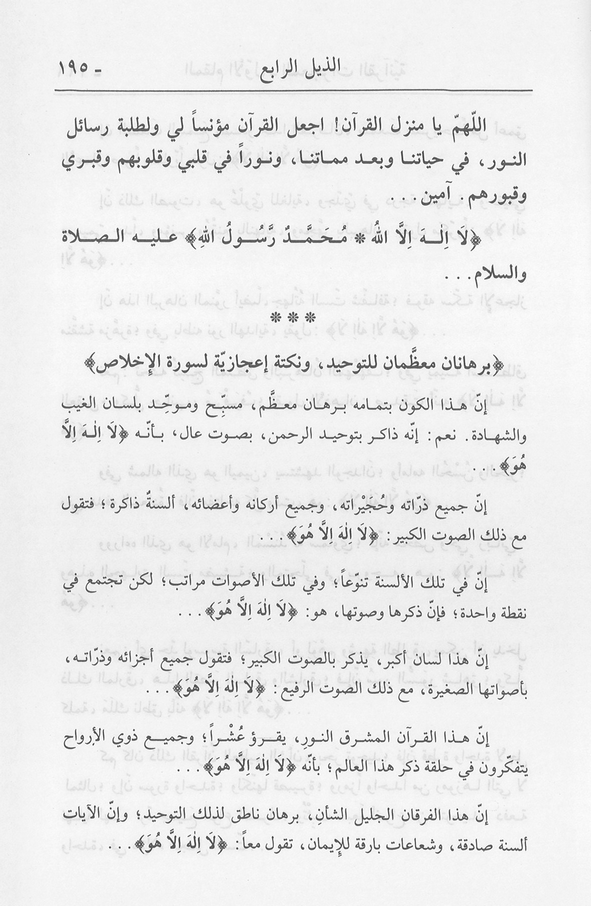 الذيل الرابع
- ١٩٥
اللّهمّ يا منزل القرآن! اجعل القرآن مؤنساً لي ولطلبة رسائل
النور، في حياتنا وبعد مماتنا، ونوراً في قلبي وقلوبهم وقبري
وقبورهم. آمين...
﴿لَا اِلٰـهَ اِلَّا اللهُ * مُـحَمَّـدٌ رَّسُــولُ اللهِ﴾ عليــه الصــلاة
والسلام...
* * *
﴿برهانان معظَّمان للتوحيد، ونكتة إعجازيّة لسورة الإخلاص﴾
إنّ هـذا الكون بتمامه برهـان معظَّم، مسبّـح وموحِّـد بلسـان الغيب
والشهـادة. نعم: إنّه ذاكـر بتوحيـد الرحمن، بصـوت عال، بـأنّـه ﴿لَا اِلٰـهَ اِلَّا
هُوَ﴾...
إنّ جميع ذرّاته وحُجَيْراته، وجميع أركانه وأعضائه، ألسنةٌ ذاكرة؛ فتقول
مع ذلك الصوت الكبير: ﴿لَا اِلٰهَ اِلَّا هُوَ﴾...
إنّ في تلك الألسنة تنوّعاً؛ وفي تلك الأصوات مراتب؛ لكن تجتمع في
نقطة واحدة؛ فإنّ ذكرها وصوتها، هو: ﴿لَا اِلٰهَ اِلَّا هُوَ﴾...
إنّ هذا لسان أكبر، يذكر بالصوت الكبير؛ فتقول جميع أجزائه وذرّاتـه،
بأصواتها الصغيرة، مع ذلك الصوت الرفيع: ﴿لَا اِلٰهَ اِلَّا هُوَ﴾...
إنّ هــذا القرآن المشرق النور، يقــرؤ عُشْــراً؛ وجميــع ذوي الأرواح
يتفكّرون في حلقة ذكر هذا العالم؛ بأنّه ﴿لَا اِلٰهَ اِلَّا هُوَ﴾...
إنّ هذا الفرقان الجليل الشأن، برهان ناطق لذلك التوحيد؛ وإنّ الآيات
ألسنة صادقة، وشعاعات بارقة للإيمان، تقول معاً: ﴿لَا اِلٰهَ اِلَّا هُوَ﴾...